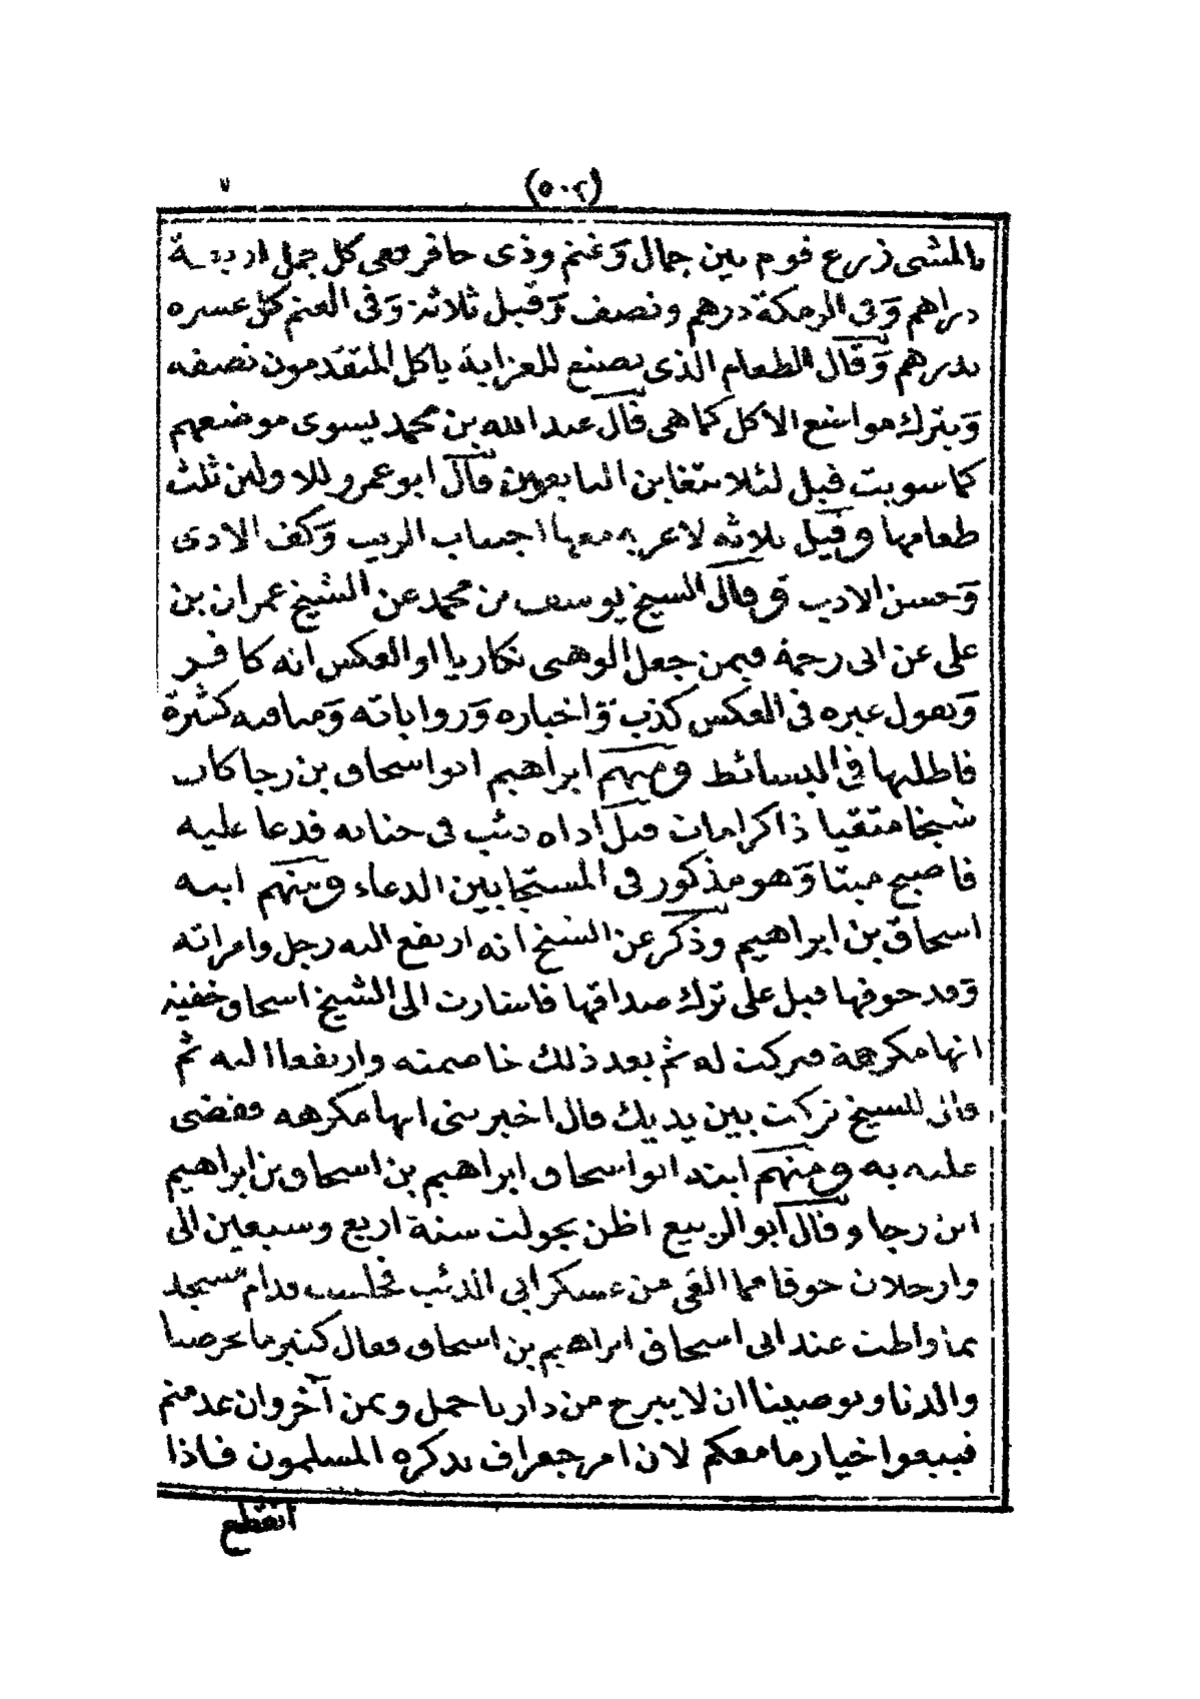 (٥٠٢) ٧
بالمشى زرع قوم بين جمال وغنم وذى حافر ففى كل جمل اربعة
دراهم وفى الرمكة درهم ونصف وقيل ثلاثة وفى الغنم كل عسره
بدرهم وقال الطعام الذى يصنع للعزابة ياكل المتقدمون نصفه
ويترك مواضع الاكل كما هى قال عبد الله بن محمد يسوى موضعهم
كما سويت قبل لئلا يتغابن قال ابو عمرو للاولين ثلث
طعامها وقيل ثلاثة لا اجتناب الريب وكف الاذى
وحسن الادب وقال الشيخ يوسف بن محمد عن الشيخ عمران بن
على عن ابى رحمة فيمن جعل الوهبى نكاريا او العكس انه كافر
ويقول غيره فى العكس كذب واخباره ورواياته ومناقبه كثيرة
فاطلبها فى البسائط ومنهم ابراهيم ابو اسحاق بن رجا كان
شيخا متقيا ذا كرامات قيل اذاه ذئب فى جنانه فدعا عليه
فاصبح ميتا وهو مذكور فى المستجابين الدعاء ومنهم ابنه
اسحاق بن ابراهيم وذكر عن الشيخ انه ارتفع اليه رجل وامراته
وقد خوفها قبل على ترك صداقها فاشارت الى الشيخ اسحاق خفية
انها مكرهة فتركت له ثم بعد ذلك خاصمته وارتفعا اليه ثم
قال للشيخ تركت بين يديك قال اخبرتنى انها مكرهه فقضى
عليه به ومنهم ابنه ابو اسحاق ابراهيم بن اسحاق بن ابراهيم
ابن رجا وقال ابو الربيع اظن تحولت سنة اربع وسبعين الى
وارجلان خوفا مما القى من عسكر ابى الذئب فجلست قدام مسجد
بماواطت عند ابى اسحاق ابراهيم بن اسحاق فقال كثير ما يحرصنا
والدنا ويوصينا ان لا يبرح من دارنا حمل وبمن آخر وان عدمتم
فبيعوا خيار ما معكم لان امر جعراف يدكره المسلمون فاذا
انقطع